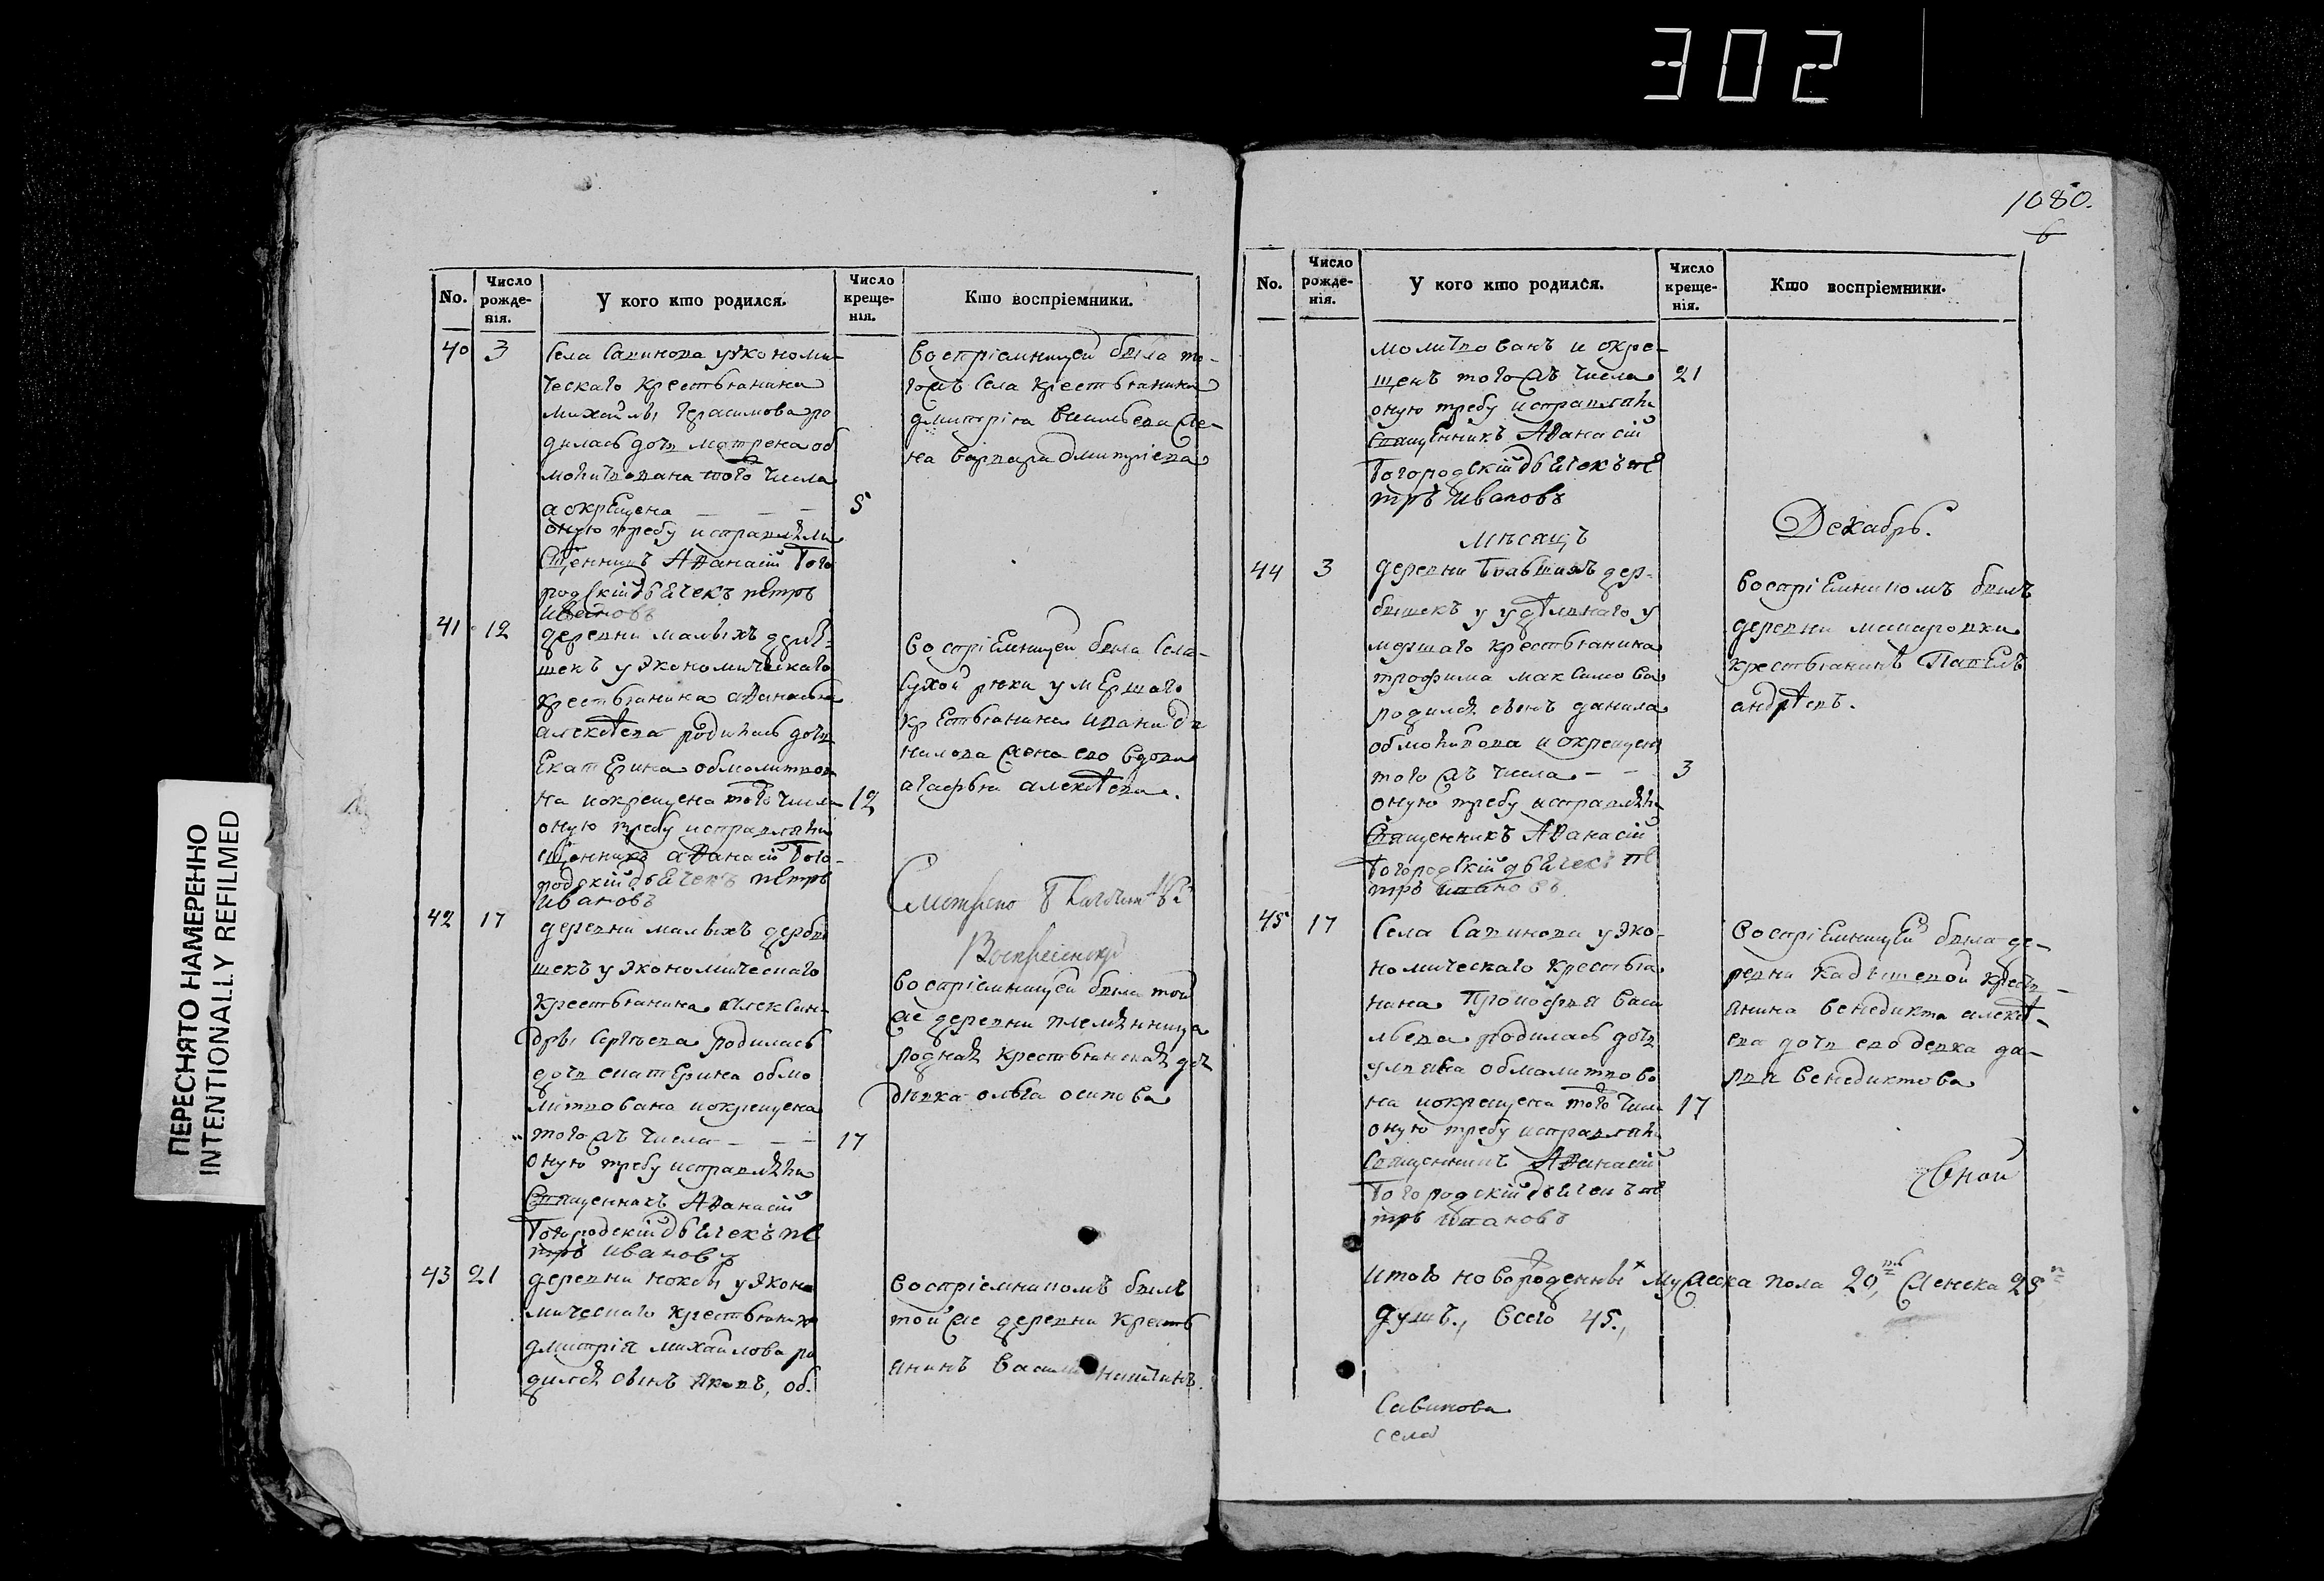 302
1080.
6
ПЕРЕСНЯТО НАМЕРЕННО
INTENTIONALLY REFILMED
No.
Число рожденія.
У кого кто родился.
Число крещенія.
Кто воспріемники.
40 3 Села Савинова у Экономи-
ческаго крестьянина
михайлы Герасимова ро
дилась дочь матрена об
молитвована того числа
а окрещена — — — 5
оную требу исправляли
Афанасій Бого
родскій дьячекъ петръ
ивановъ
Воспріемницей была то-
гожъ Села крестьянина
дмитрія васильева же-
на варвара дмитріева
41 12 деревни малыхъ дерб-
шекъ у Экономическаго
крестьянина афанасья
алексѣева родилась дочь
Екатерина обмолитвова
на и окрещена того числа 12
оную требу исправляли
афанасій Бого-
родскій дьячекъ петръ
ивановъ
воспріемницей была села
сухой рѣки умершаго
крестьянина ивана да
нилова жена ево вдова
агафья алексѣева.
Смотрено
42 17 деревни малыхъ дербы
шекъ у Экономическаго
крестьянина алексан-
дры Сергѣева родилась
дочь екатерина обмо
литвована и окрещена
того жъ числа — — — 17
оную требу исправляли
Священникъ Афанасій
Богородскій дьячекъ пе
тръ ивановъ
воспріемницей была той
же деревни племянница
родная крестьянская доч
девка ольга осипова
43 21 деревни ноксы у Эконо
мическаго крестьянина
дмитрія михайлова ро
дился сынъ яковъ, об.
воспріемникомъ былъ
той же деревни кресть
янинъ василій никитинъ.
No.
Число рожденія.
У кого кто родился.
Число крещенія.
Кто воспріемники.
молитвованъ и окре-
щенъ того жъ числа 21
оную требу исправляли
Священникъ Афанасій
Богородскій дьячекъ пе
тръ ивановъ
мѣсяцъ Декабрь.
44 3 деревни дер-
бышекъ у удѣльнаго у
мершаго крестьянина
трофима максимова
родился сынъ данила
обмолитвова и окрещенъ
того жъ числа — — 3
оную требу исправляли
Священникъ Афанасій
Богородскій дьячекъ пе
тръ ивановъ
воспріемникомъ былъ
деревни
крестьянинъ Павелъ
андрѣевъ.
45 17 Села Савинова у Эко-
номическаго крестья
нина Прокофья васи
льева родилась дочь
ульяна обмолитвова
на и окрещена того числа 17
оную требу исправляли
Священникъ Афанасій
Богородскій дьячекъ пе
тръ ивановъ
воспріемницей была де-
ревни кадышевой кресть-
янина венедикта алексѣ-
ева дочь ево девка да-
рья венедиктова
Итого новорожденныхъ мужеска пола 20, женска 25
душъ., всего 45.,
Савинова
села